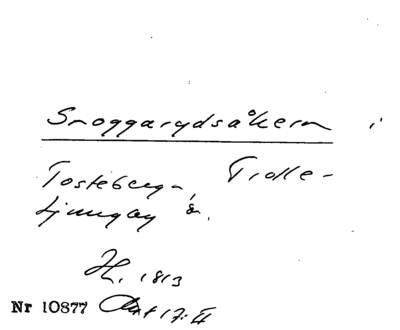 Snoggarydsåkern i
Tosteberga, Trolle-
Ljungby sn.
H. 1813
Nr 10877 Akt 17: II